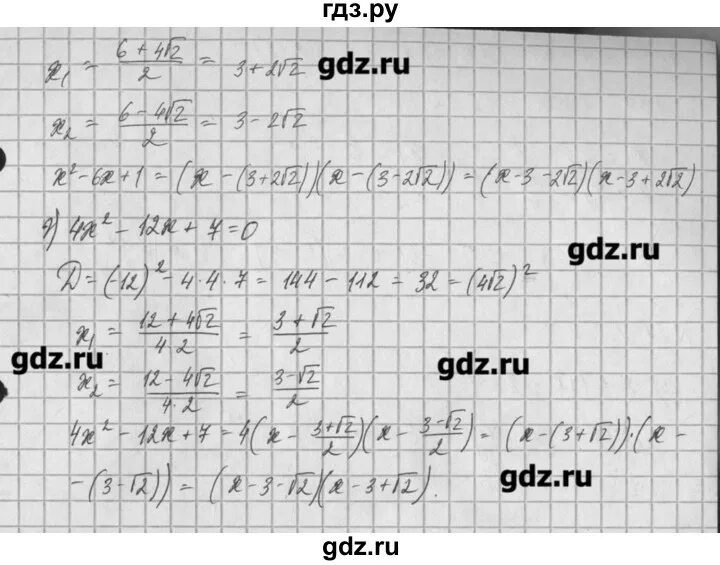 гдз.ру
x₁ = (6 + 4√2)/2 = 3 + 2√2
gdz.ru
x₂ = (6 - 4√2)/2 = 3 - 2√2
x² - 6x + 1 = (x - (3+2√2))(x - (3-2√2)) = (x - 3 - 2√2)(x - 3 + 2√2)
г) 4x² - 12x + 7 = 0
gdz.ru
D = (-12)² - 4·4·7 = 144 - 112 = 32 = (4√2)²
x₁ = (12 + 4√2)/(4·2) = (3 + √2)/2
gdz.ru
gdz.ru
x₂ = (12 - 4√2)/(4·2) = (3-√2)/2
4x² - 12x + 7 = 4(x - (3+√2)/2)(x - (3-√2)/2) = (x - (3+√2))·(x -
- (3-√2)) = (x - 3 - √2)(x - 3 + √2).
gdz.ru
gdz.ru